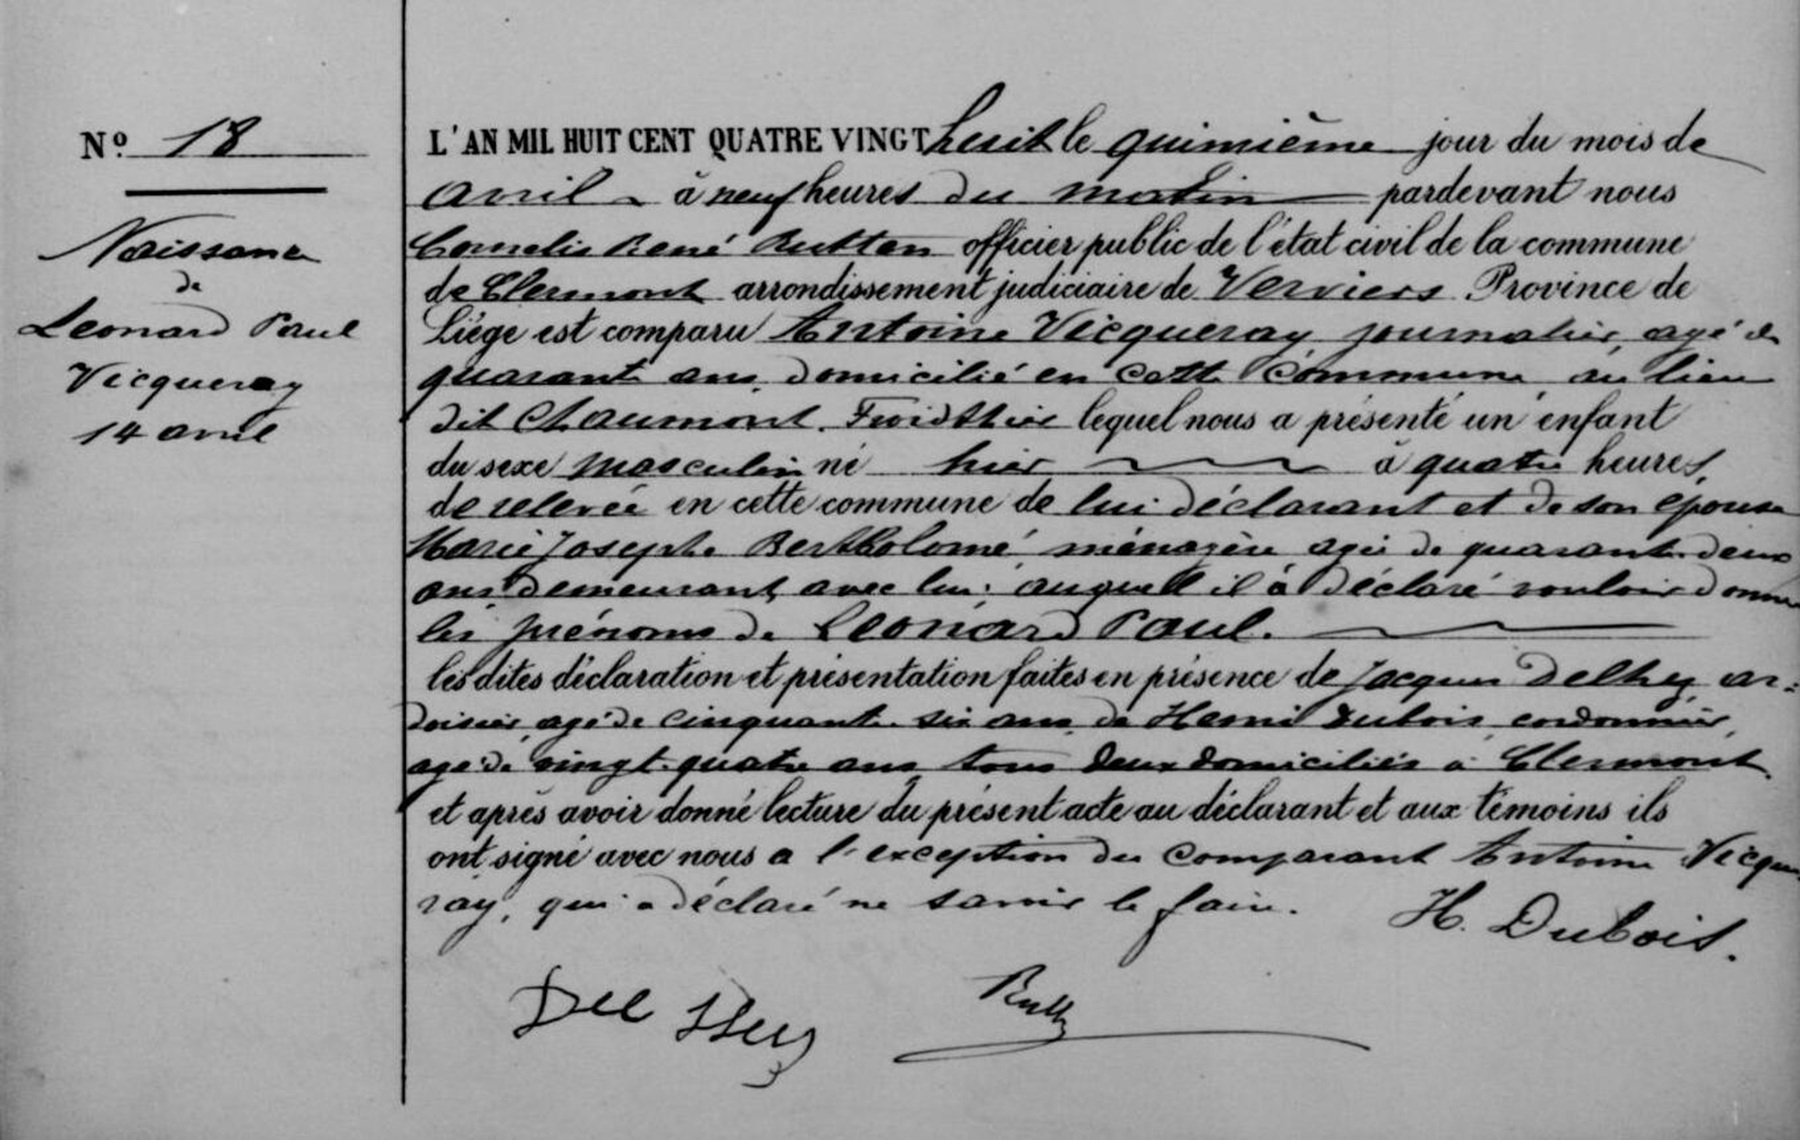 Nº 18
Naissance
de
Leonard Paul
Vicqueray
14 avril
L'AN MIL HUIT CENT QUATRE VINGT huit le quinzième jour du mois de
avril à neuf heures du matin pardevant nous
Cornelis René Rutten officier public de l'état civil de la commune
de Clermont arrondissement judiciaire de Verviers Province de
Liége est comparu Antoine Vicqueray journalier, agé de
quarante ans, domicilié en cette commune au lieu
dit Chaumont, Froidthier lequel nous a présenté un enfant
du sexe masculin né hier à quatre heures,
de relevée en cette commune de lui déclarant et de son épouse
Marie Josephe Bertholomé, ménagère agée de quarante deux
ans demeurant avec lui; auquel il a déclaré vouloir donner
les prénoms de Leonard Paul.
les dites déclaration et présentation faites en présence de Jacques Delhey ar=
doisier, agé de cinquante six ans, de Henri Dubois, cordonnier,
agé de vingt quatre ans tous deux domiciliés à Clermont.
et après avoir donné lecture du présent acte au déclarant et aux témoins ils
ont signé avec nous a l'exception du comparant Antoine Vicque
ray, qui a déclaré ne savoir le faire.
H. Dubois.
Del Hey